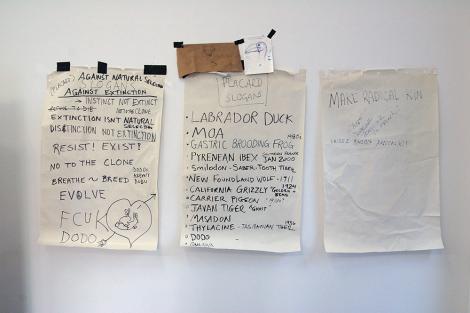 (PLACARD) AGAINST NATURAL SELECTION
SLOGANS
AGAINST EXTINCTION
→ INSTINCT NOT EXTINCT
NATURE CLONE
EXTINCTION ISNT NATURAL SELECTION
DISTINCTION NOT EXTINCTION
RESIST! EXIST!
NO TO THE CLONE
BREATHE ~ BREED
EVOLVE
FCUK
DODO
PLACARD
SLOGANS
LABRADOR DUCK
MOA
GASTRIC BROODING FROG 1980s
PYRENEAN IBEX JAN 2000
Smilodon - SABER-TOOTH TIGER
NEW FOUNDLAND WOLF - 1911
CALIFORNIA GRIZZLY 1924 "GOLDEN BEAR"
CARRIER PIGEON
JAVAN TIGER
MASADON
THYLACINE - TASMANIAN TIGER 1936
DODO
MAKE RADICAL KIN